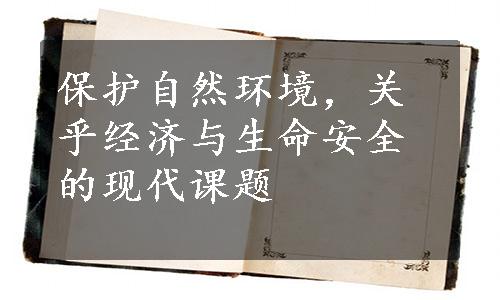 保护自然环境，关
乎经济与生命安全
的现代课题